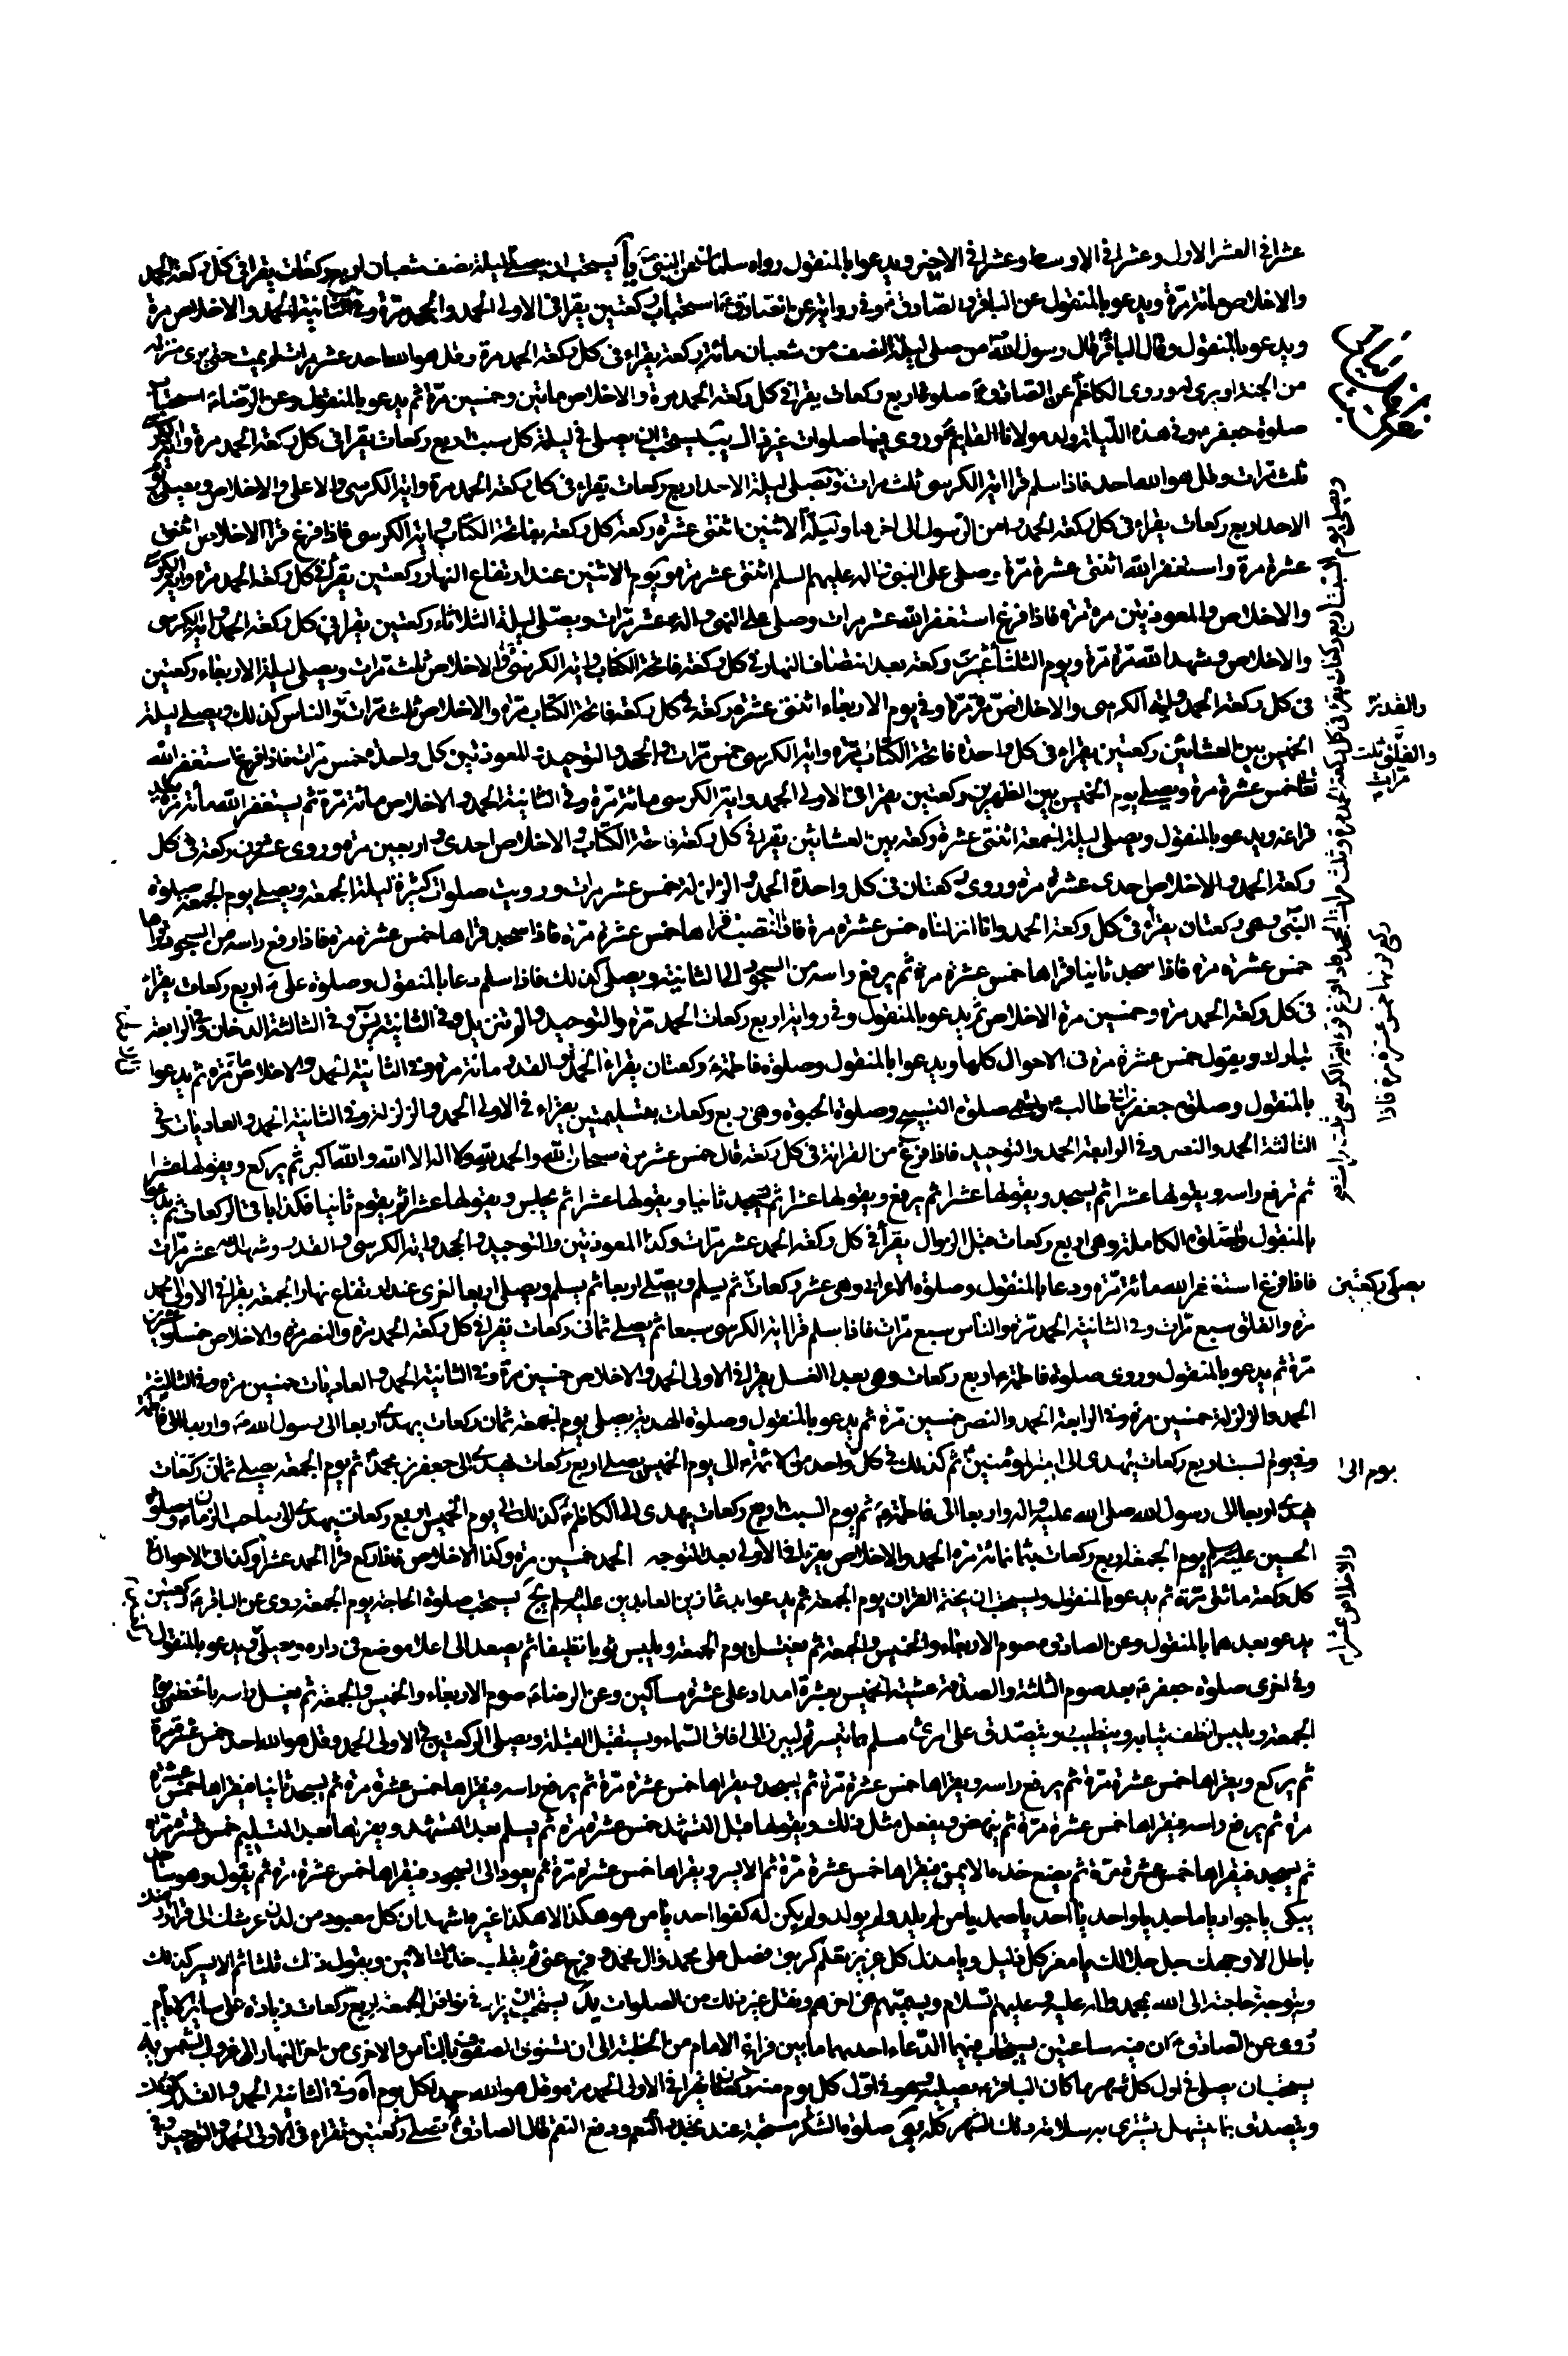 عشرا في العشر الاول وعشرا في الاوسط وعشرا في الاخير ويدعوا بالمنقول رواه سلمان عن النبي يا يستحب ان يصلى ليلة نصف شعبان اربع ركعات يقرا في كل ركعة الحمد
والاخلاص مائة مرة ويدعو بالمنقول عن الباقر والصادق وفي رواية عن الصادق استحباب ركعتين يقرا في الاولى الحمد والجحد مرة وفي الثانية الحمد والاخلاص مرة
ويدعو بالمنقول وقال الباقر قال رسول الله من صلى ليلة النصف من شعبان مائة ركعة يقراء في كل ركعة الحمد مرة وقل هو الله احد عشر مرات لم يمت حتى يرى منزله
من الجنة او يرى له وروى الكاظم عن الصادق صلوة اربع ركعات يقرا في كل ركعة الحمد مرة والاخلاص ماتين وخمسين مرة ثم يدعو بالمنقول وعن الرضا استحباب
صلوة جعفر وفي هذه الليلة ولد مولانا القايم وروى فيها صلوات غير ذلك يب يستحب ان يصلى في ليلة كل سبت اربع ركعات يقرا في كل ركعة الحمد مرة واية الكرسي
ثلث مرات وقل هو الله احد فاذا سلم قرا اية الكرسي ثلث مرات ويصلى ليلة الاحد اربع ركعات يقراء في كل ركعة الحمد مرة واية الكرسي والاعلى والاخلاص ويصلى يوم
الاحد اربع ركعات يقراء في كل ركعة الحمد وامن الرسول الى اخرها وليلة الاثنين اثنتى عشرة ركعة كل ركعة بفاتحة الكتاب واية الكرسي فاذا فرغ قرا الاخلاص اثنتى
عشرة مرة واستغفر الله اثنتى عشرة مرة وصلى على النبي واله عليهم السلم اثنتى عشر مرة ويوم الاثنين عند ارتفاع النهار ركعتين يقرا في كل ركعة الحمد مرة واية الكرسي
والاخلاص والمعوذتين مرة مرة فاذا فرغ استغفر الله عشر مرات وصلى على النبي واله عشر مرات ويصلى ليلة الثلاثاء ركعتين يقرا في كل ركعة الحمد واية الكرسي
والاخلاص وشهد الله مرة مرة ويوم الثلثا عشرين ركعة بعد انتصاف النهار في كل ركعة فاتحة الكتاب واية الكرسي والاخلاص ثلث مرات ويصلى ليلة الاربعاء ركعتين
في كل ركعة الحمد واية الكرسي والاخلاص والقدر مرة مرة وفي يوم الاربعاء اثنتى عشرة ركعة في كل ركعة فاتحة الكتاب مرة والاخلاص ثلث مرات والناس كذلك ويصلى ليلة
الخميس بين العشائين ركعتين يقراء في كل واحدة فاتحة الكتاب مرة واية الكرسي خمس مرات والجحد والتوحيد والمعوذتين كل واحدة خمس مرات فاذا فرغ استغفر الله
تعالى خمس عشرة مرة ويصلى يوم الخميس بين الظهرين ركعتين يقرا في الاولى الحمد واية الكرسي مائة مرة وفي الثانية الحمد والاخلاص مائة مرة ثم يستغفر الله مائة مرة بعد
فراغه ويدعو بالمنقول ويصلى ليلة الجمعة اثنتى عشرة ركعة بين العشائين يقرا في كل ركعة فاتحة الكتاب والاخلاص احدى واربعين مرة وروى عشرون ركعة في كل
ركعة الحمد والاخلاص احدى عشرة مرة وروى ركعتان في كل واحدة الحمد والزلزلة خمس عشر مرات ورويت صلوات كثيرة ليلة الجمعة ويصلى يوم الجمعة صلوة
النبي وهي ركعتان يقرأ في كل ركعة الحمد وانا انزلناه خمس عشرة مرة فاذا انتصب قراها خمس عشرة مرة فاذا سجد قراها خمس عشرة مرة فاذا رفع راسه من السجود قراها
خمس عشرة مرة فاذا سجد ثانيا قراها خمس عشرة مرة ثم يرفع راسه من السجود الى الثانية ويصلى كذلك فاذا سلم دعا بالمنقول وصلوة على اربع ركعات يقراء
في كل ركعة الحمد مرة وخمسين مرة الاخلاص ثم يدعو بالمنقول وفي رواية اربع ركعات الحمد مرة والتوحيد والم تنزيل وفي الثانية يس وفي الثالثة الدخان وفي الرابعة
تبارك ويقول خمس عشرة مرة في الاحوال كلها ويدعوا بالمنقول وصلوة فاطمة ركعتان يقراء الحمد والقدر مائة مرة وفي الثانية الحمد والاخلاص مائة مرة ثم يدعوا
بالمنقول وصلوة جعفر بن ابي طالب صلوة التسبيح وصلوة الحبوة وهي اربع ركعات بتسليمتين يقراء في الاولى الحمد والزلزلة وفي الثانية الحمد والعاديات وفي
الثالثة الحمد والنصر وفي الرابعة الحمد والتوحيد فاذا فرغ من القرائة في كل ركعة قال خمس عشر مرة سبحان الله والحمد لله ولا اله الا الله والله اكبر ثم يركع ويقولها عشرا
ثم ترفع راسه ويقولها عشرا ثم يسجد ويقولها عشرا ثم يرفع ويقولها عشرا ثم يسجد ثانيا ويقولها عشرا ثم يجلس ويقولها عشرا ثم يقوم ثانيا فكذا باقي الركعات ثم يدعو
بالمنقول والصلوة الكاملة وهي اربع ركعات قبل الزوال يقرأ في كل ركعة الحمد عشر مرات وكذا المعوذتين والتوحيد والجحد واية الكرسي والقدر وشهد الله عشر مرات
فاذا فرغ استغفر الله مائة مرة ودعا بالمنقول وصلوة الاعرابي وهي عشر ركعات يصلى ركعتين ثم يسلم ويصلى اربعا ثم يسلم ويصلى اربعا اخرى عند ارتفاع نهار الجمعة يقرا في الاولى الحمد
مرة والفلق سبع مرات وفي الثانية الحمد مرة والناس سبع مرات فاذا سلم قرا اية الكرسي سبعا ثم يصلى ثماني ركعات يقرا في كل ركعة الحمد مرة والنصر مرة والاخلاص خمسا وعشرين
مرة ثم يدعو بالمنقول وروى صلوة فاطمة اربع ركعات وهي بعد الغسل يقرا في الاولى الحمد والاخلاص خمسين مرة وفي الثانية الحمد والعاديات خمسين مرة وفي الثالثة
الحمد والزلزلة خمسين مرة وفي الرابعة الحمد والنصر خمسين مرة ثم يدعو بالمنقول وصلوة الهدية يصلى يوم الجمعة ثمان ركعات يهدى اربعا الى رسول الله واربعا الى فاطمة
وفي يوم السبت اربع ركعات يهدى الى امير المؤمنين ثم كذلك في كل يوم الى واحد من الائمة الى يوم الخميس يصلى اربع ركعات يهدى الى جعفر بن محمد ثم يوم الجمعة يصلى ثمان ركعات
يهدى اربعا الى رسول الله صلى الله عليه واله واربعا الى فاطمة ثم يوم السبت اربع ركعات يهدى الى الكاظم كذلك الى يوم الخميس اربع ركعات يهدى الى صاحب الزمان وصلوة
الحسين عليه السلم يوم الجمعة اربع ركعات بثمانمائة مرة الحمد والاخلاص يقرا في الاولى بعد التوجه الحمد خمسين مرة وكذا الاخلاص فاذا ركع قرا الحمد عشرا والاخلاص عشرا وكذا في الاحوال
كل ركعة مائتى مرة ثم يدعو بالمنقول ويستحب ان يختم القران يوم الجمعة ثم يدعوا بدعاء زين العابدين عليه السلم يج يستحب صلوة الحاجة يوم الجمعة روى عن الباقر ركعتين
يدعو بعدهما بالمنقول وعن الصادق صوم الاربعاء والخميس والجمعة ثم يغتسل يوم الجمعة ويلبس ثوبا نظيفا ثم يصعد الى اعلا موضع في داره ويصلى ويدعو بالمنقول
وفي اخرى صلوة جعفر بعد صوم الثلثة والصدقة عشية الخميس بعشرة امداد على عشرة مساكين وعن الرضا صوم الاربعاء والخميس والجمعة ثم يغسل راسه بالخطمى يوم
الجمعة ويلبس انظف ثيابه ويتطيب ويتصدق على امرئ مسلم بما تيسر ثم ليبرز الى افاق السماء ويستقبل القبلة ويصلى الركعتين في الاولى الحمد وقل هو الله احد خمس عشرة مرة
ثم يركع ويقراها خمس عشرة مرة ثم يرفع راسه ويقراها خمس عشرة مرة ثم يسجد ويقراها خمس عشرة مرة ثم يرفع راسه فيقراها خمس عشرة مرة ثم يسجد ثانيا فيقراها خمس عشرة
مرة ثم يرفع راسه فيقراها خمس عشرة مرة ثم ينهض ويفعل مثل ذلك ويقولها قبل التشهد خمس عشرة مرة ثم يسلم بعد التشهد ويقراها بعد التسليم خمس عشرة مرة
ثم يسجد فيقراها خمس عشرة مرة ثم يضع خده الايمن فيقراها خمس عشرة مرة ثم الايسر ويقراها خمس عشرة مرة ثم يعود الى السجود فيقراها خمس عشرة مرة ثم يقول وهو ساجد
يبكى يا جواد يا ماجد يا واحد يا احد يا صمد يا من لم يلد ولم يولد ولم يكن له كفوا احد يا من هو هكذا لا هكذا غيره اشهد ان كل معبود من لدن عرشك الى قرار ارضك
باطل الا وجهك جل جلالك يا معز كل ذليل ويا مذل كل عزيز تعلم كربتى فصل على محمد وال محمد وفرج عنى ثم يقلب خدك الايمن ويقول ذلك ثلثا ثم الايسر كذلك
ويتوجه حاجته الى الله بمحمد واله عليه وعليهم السلام ويسميهم عن اخرهم ونقل غير ذلك من الصلوات يد يستحب ان يزاد في نوافل الجمعة اربع ركعات زيادة على ساير الايام
روى عن الصادق ان فيه ساعتين يستجاب فيهما الدعاء احديهما ما بين فراغ الامام من الخطبة الى ان تستوى الصفوف بالناس والاخرى من اخر النهار الى غروب الشمس يه
يستحب ان يصلى في اول كل شهر ما كان الباقر يصليه وهو في اول كل يوم منه ركعتان يقرا في الاولى الحمد مرة وقل هو الله احد لكل يوم مرة وفي الثانية الحمد والقدر كذلك
ويتصدق بما يتسهل يشترى به سلامة ذلك الشهر كله يو صلوة الشكر مستحبة عند تجدد النعم ودفع النقم قال الصادق تصلى ركعتين تقراء في الاولى الحمد والتوحيد وفي
والقدر مرة
والفلق ثلث
مرات
يصلى ركعتين
يوم الى
والاخلاص عشرا